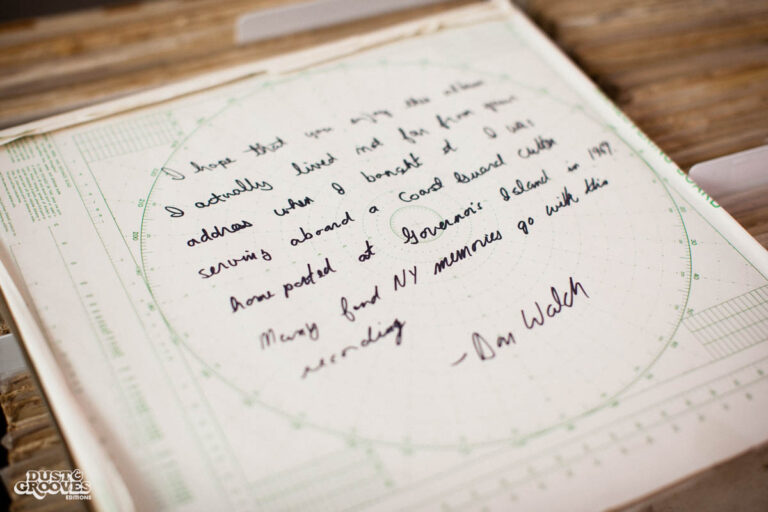 I hope that you enjoy this album
I actually lived not far from your
address when I bought it I was
serving aboard a Coast Guard Cutter
home ported at Governor's Island in
Many fond NY memories go with this
recording
- Don Walch
DUST &
GROOVES
EDITIONS